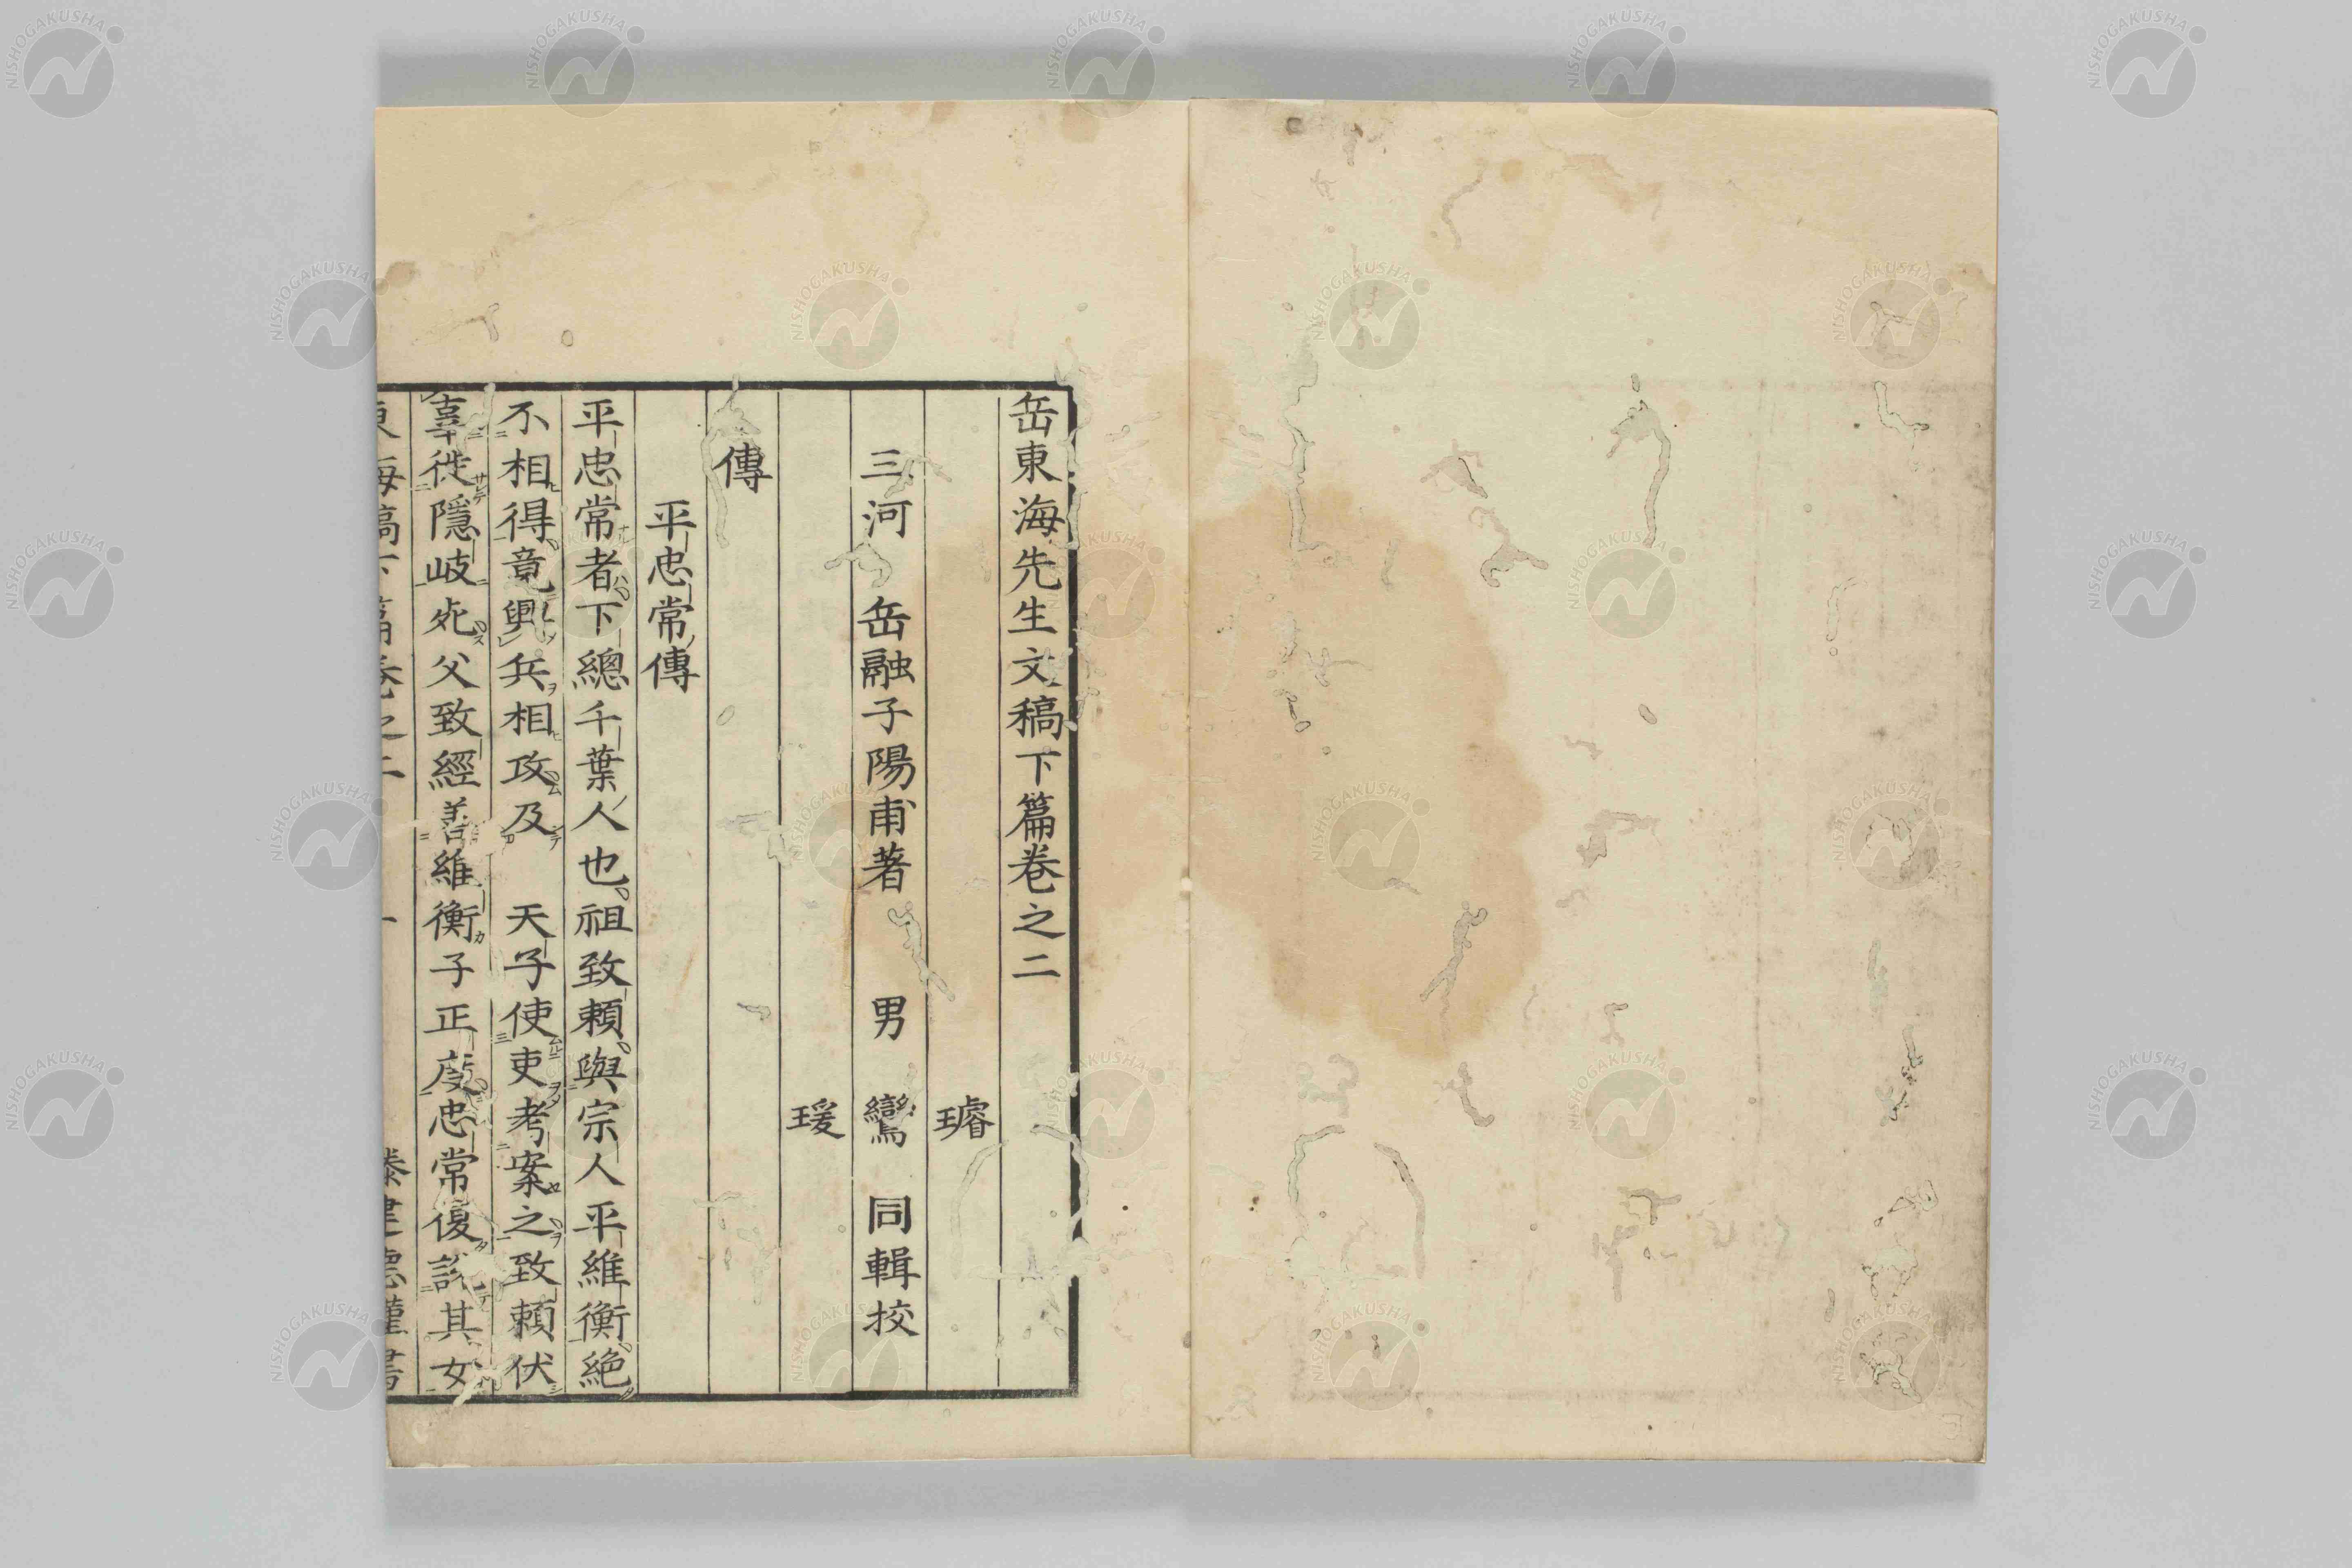 岳東海先生文稿下篇卷之二
璿
三河 岳融子陽甫著 男 鸞 同輯挍
瑗
傳
平忠常傳
平忠常者下總千葉人也祖致賴與宗人平維衡絶
不相得竟興兵相攻及 天子使吏考案之致賴伏
辜徙隱岐死父致經善維衡子正度忠常復說其女
東海稿下篇卷之二 一 滕建德謹書
NISHOGAKUSHA